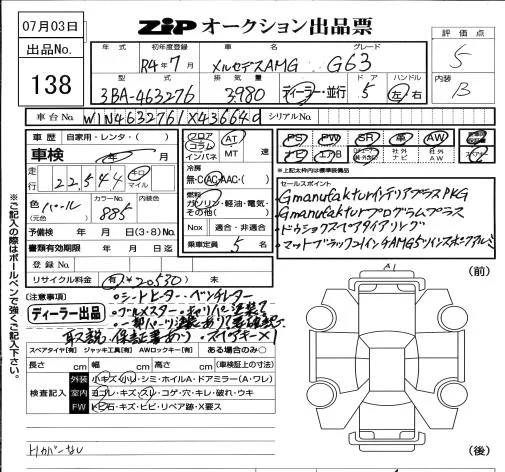 07月03日
ZIP オークション出品票
評価点
5
出品No.
138
年式
初年度登録
R4年7月
車名
メルセデスAMG
グレード
G63
型式
3BA-463276
排気量
3,980
ディーラー・並行
ドア
5
ハンドル
左 右
内装
B
車台No.
W1N4632761X436640
シリアルNo.
車歴
自家用・レンタ・( )
フロア
コラム
インパネ
AT
MT
速
PS PW SR 革 AW
ナビ エアB
社外
ナビ
社外
AW
車検
年 月
冷房
無・C・AC・AAC・( )
※上記太枠内は装備ゴロ
走行
22,544
キロ
マイル
燃料
ガソリン・軽油・電気・
その他( )
セールスポイント
Gmanufakturインテリアプラス PKG
Gmanufakturプログラムプラス
・ドゥシックスペアタイアリング
・マットブラック21インチAMG5ツインスポークアルミ
色
(元色)
パール
カラーNo.
885
内装色
Nox
適合・非適合
予備検 年 月 日(3・8)No.
書類有効期限 年 月 日迄
乗車定員
5 名
登録No.
リサイクル料金
有 ¥20,530 未
(注意事項)
ディーラー出品
・シートヒーター・ベンチレーター
・ブルメスター
取説・保証書あり・スペアキー×1
スペアタイヤ[有] ジャッキ工具[有] AWロックキー[有] ある場合のみ○
長さ cm 幅 cm 高さ cm (車検証上の寸法)
検査記入
外装 小キズ・小凹・シミ・ホイルA・ドアミラー(A・ワレ)
室内 ヨゴレ・キズ・スレ・コゲ・穴・キレ・破れ・ウキ
FW トビ石・キズ・ヒビ・リペア跡・X要ス
トノカバーなし
A1
(前)
(後)
※ご記入の際はボールペンで強くご記入下さい。